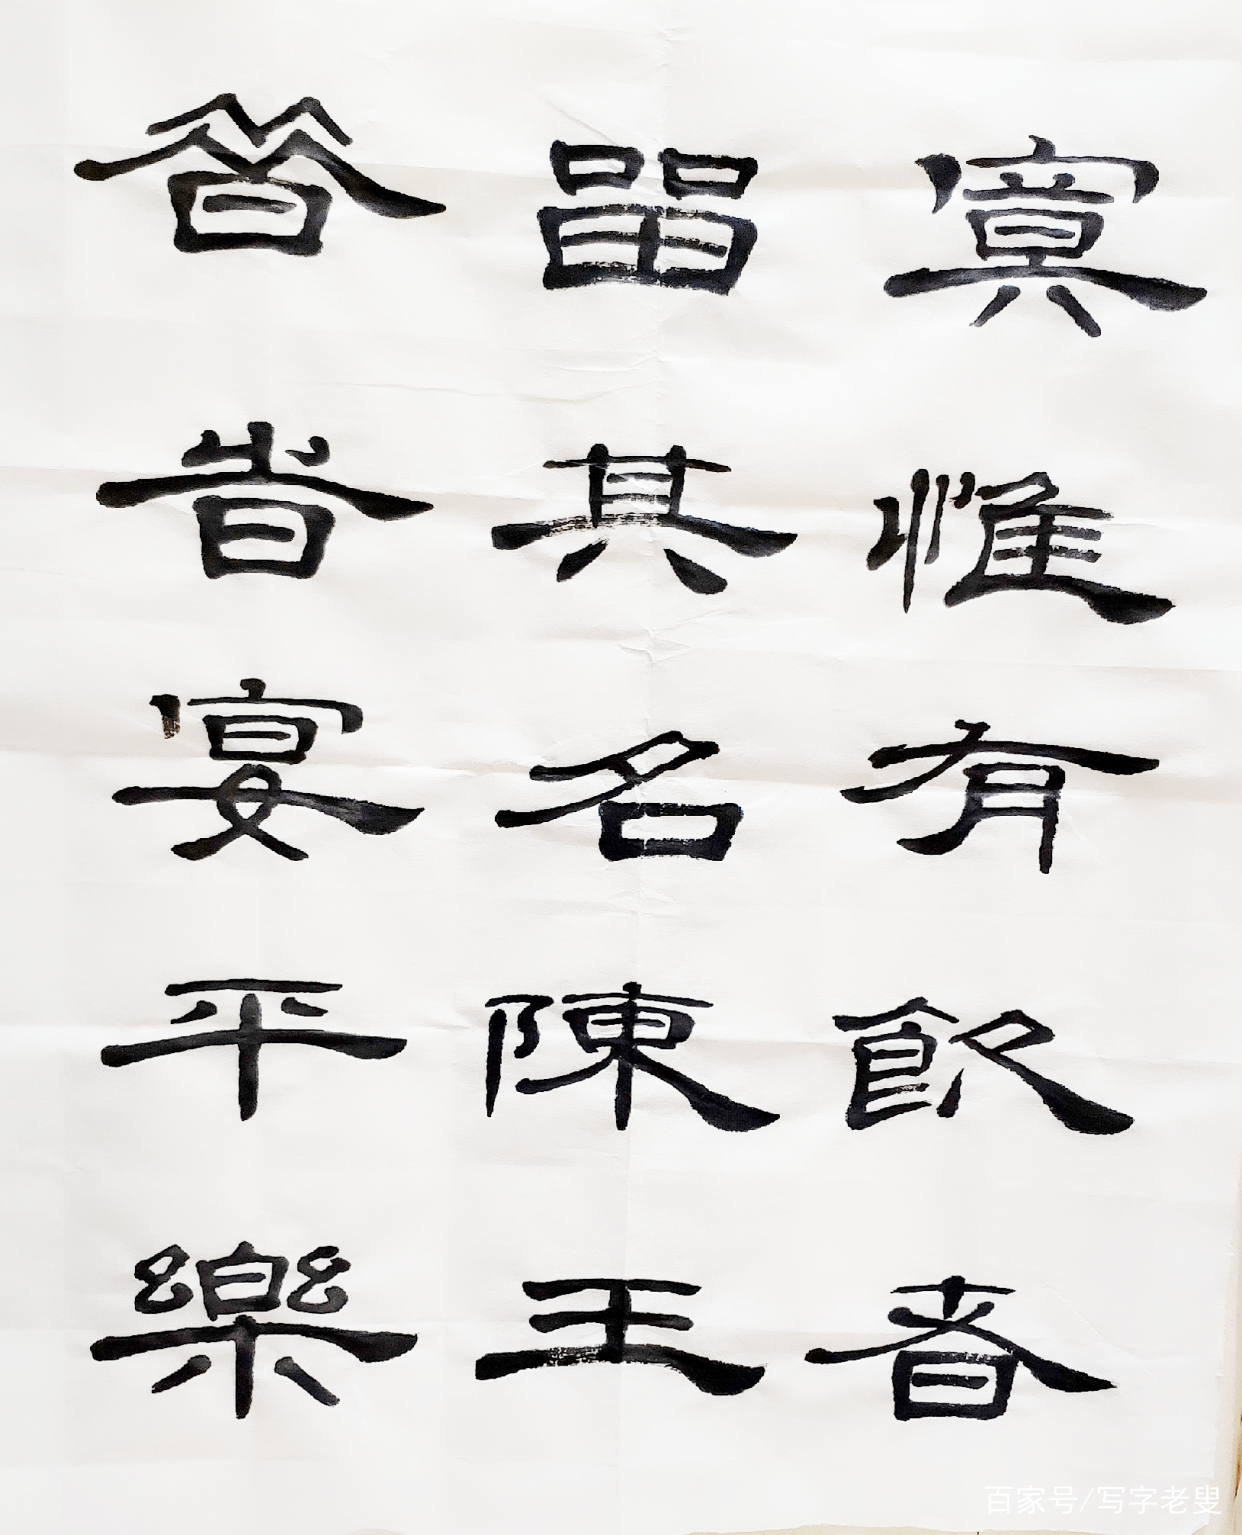 寞惟有飲者
留其名陳王
昔旹宴平樂
百家号/写字老叟